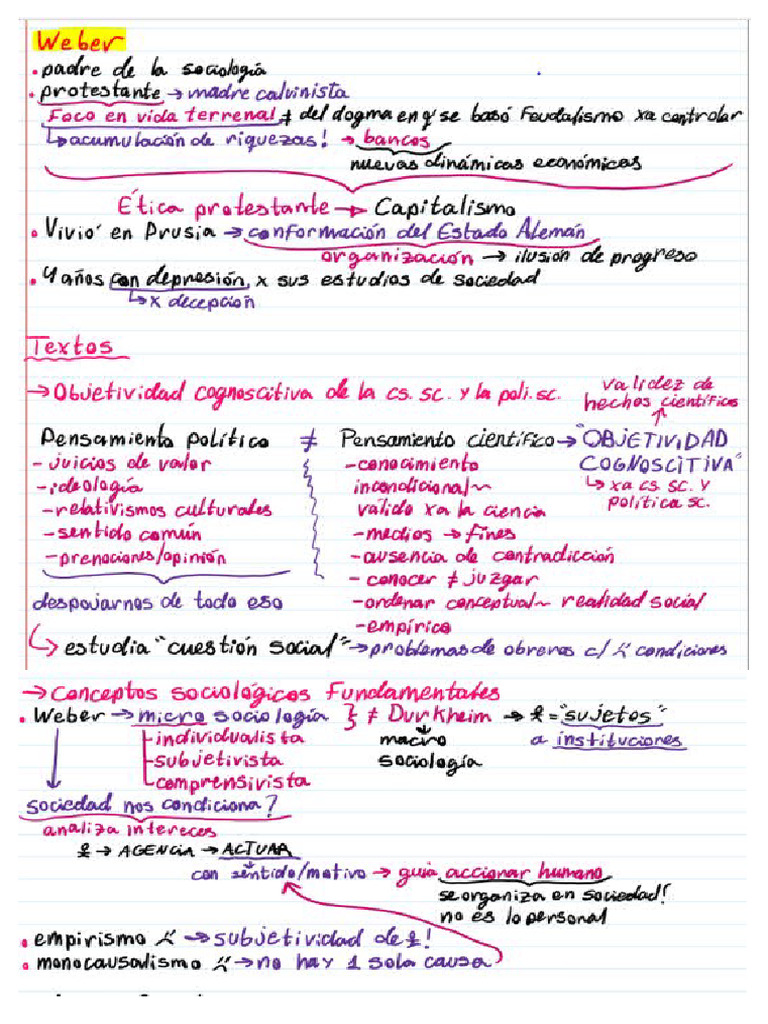 Weber
• padre de la sociología
• protestante → madre calvinista
Foco en vida terrenal ≠ del dogma en q' se basó Feudalismo xa controlar
↳ acumulación de riquezas! → bancos
nuevas dinámicas económicas
Ética protestante → Capitalismo
• Vivió en Prusia → conformación del Estado Alemán
organización → ilusión de progreso
• 4 años con depresión x sus estudios de sociedad
↳ x decepción
Textos
→ Objetividad cognoscitiva de la cs. sc. y la poli. sc.
validez de
hechos científicos
Pensamiento político ≠ Pensamiento científico → "OBJETIVIDAD
COGNOSCITIVA"
↳ xa cs. sc. y
política sc.
- juicios de valor
- ideología
- relativismos culturales
- sentido común
- prenociones/opinión
despojarnos de todo eso
- conocimiento
incondicional~
válido xa la ciencia
- medios → fines
- ausencia de contradicción
- conocer ≠ juzgar
- ordenar conceptual~ realidad social
- empírico
↳ estudia "cuestión social" → problemas de obreros c/ condiciones
→ Conceptos sociológicos Fundamentales
• Weber → micro sociología } ≠ Durkheim → = "sujetos"
a instituciones
macro
sociología
- individualista
- subjetivista
- comprensivista
sociedad nos condiciona?
analiza intereces
→ AGENCIA → ACTUAR
con sentido/motivo → guía accionar humano
se organiza en sociedad!
no es lo personal
• empirismo → subjetividad de !
• monocausalismo → no hay 1 sola causa